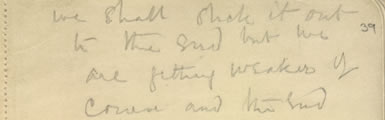 we shall stick it out
to the end but we 39
are getting weaker of
course and the end